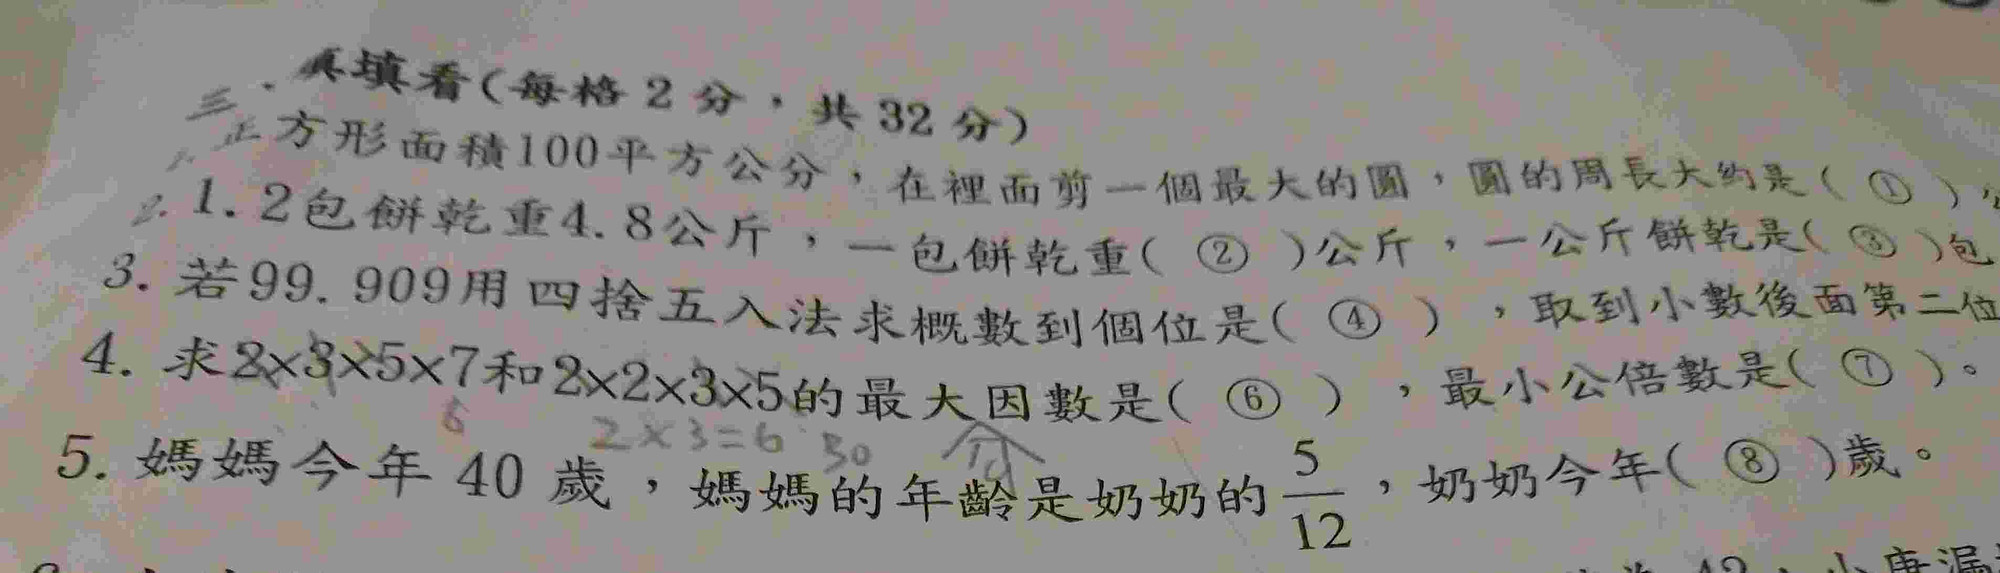 三、填填看(每格 2 分，共 32 分)
1. 正方形面積100平方公分，在裡面剪一個最大的圓，圓的周長大約是( ① )
2. 1.2包餅乾重4.8公斤，一包餅乾重( ② )公斤，一公斤餅乾是( ③ )包
3. 若99.909用四捨五入法求概數到個位是( ④ )，取到小數後面第二位
4. 求2×3×5×7和2×2×3×5的最大因數是( ⑥ )，最小公倍數是( ⑦ )。
6 2×3=6 30 公
5. 媽媽今年 40 歲，媽媽的年齡是奶奶的5/12，奶奶今年( ⑧ )歲。